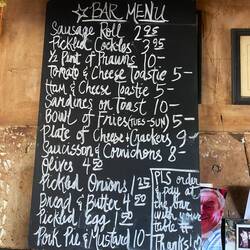 ☆ BAR MENU
Sausage Roll 2.95
Pickled Cockles 3.95
½ Pint of Prawns 10-
Tomato & Cheese Toastie 5-
Ham & Cheese Toastie 5-
Sardines on Toast 10-
Bowl of Fries (TUES-SUN) 5-
Plate of Cheese & Crackers 9-
Saucisson & Cornichons 8-
Olives 4.50
Pickled Onions 1.25
Bread & Butter 4.50
Pickled Egg 1.50
Pork Pie & Mustard 10-
PLS order
& pay at
the bar
with your
table #
Thanks!